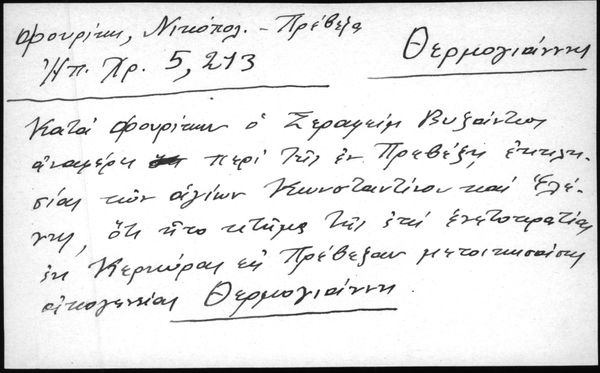 Φουρίκη, Νικόπολ. - Πρέβεζα
Ἠπ. Χρ. 5, 213
Θερμογιάννη
Κατά Φουρίκην ὁ Σεραφείμ Βυζάντιος
ἀναφέρει περί τῆς ἐν Πρεβέζῃ ἐκκλη-
σίας τῶν ἁγίων Κωνσταντίνου καί Ἑλέ-
νης, ὅτι ἦτο κτῆμα τῆς ἐπί ἑνετοκρατίας
ἐκ Κερκύρας εἰς Πρέβεζαν μετοικησάσης
οἰκογενείας Θερμογιάννη.